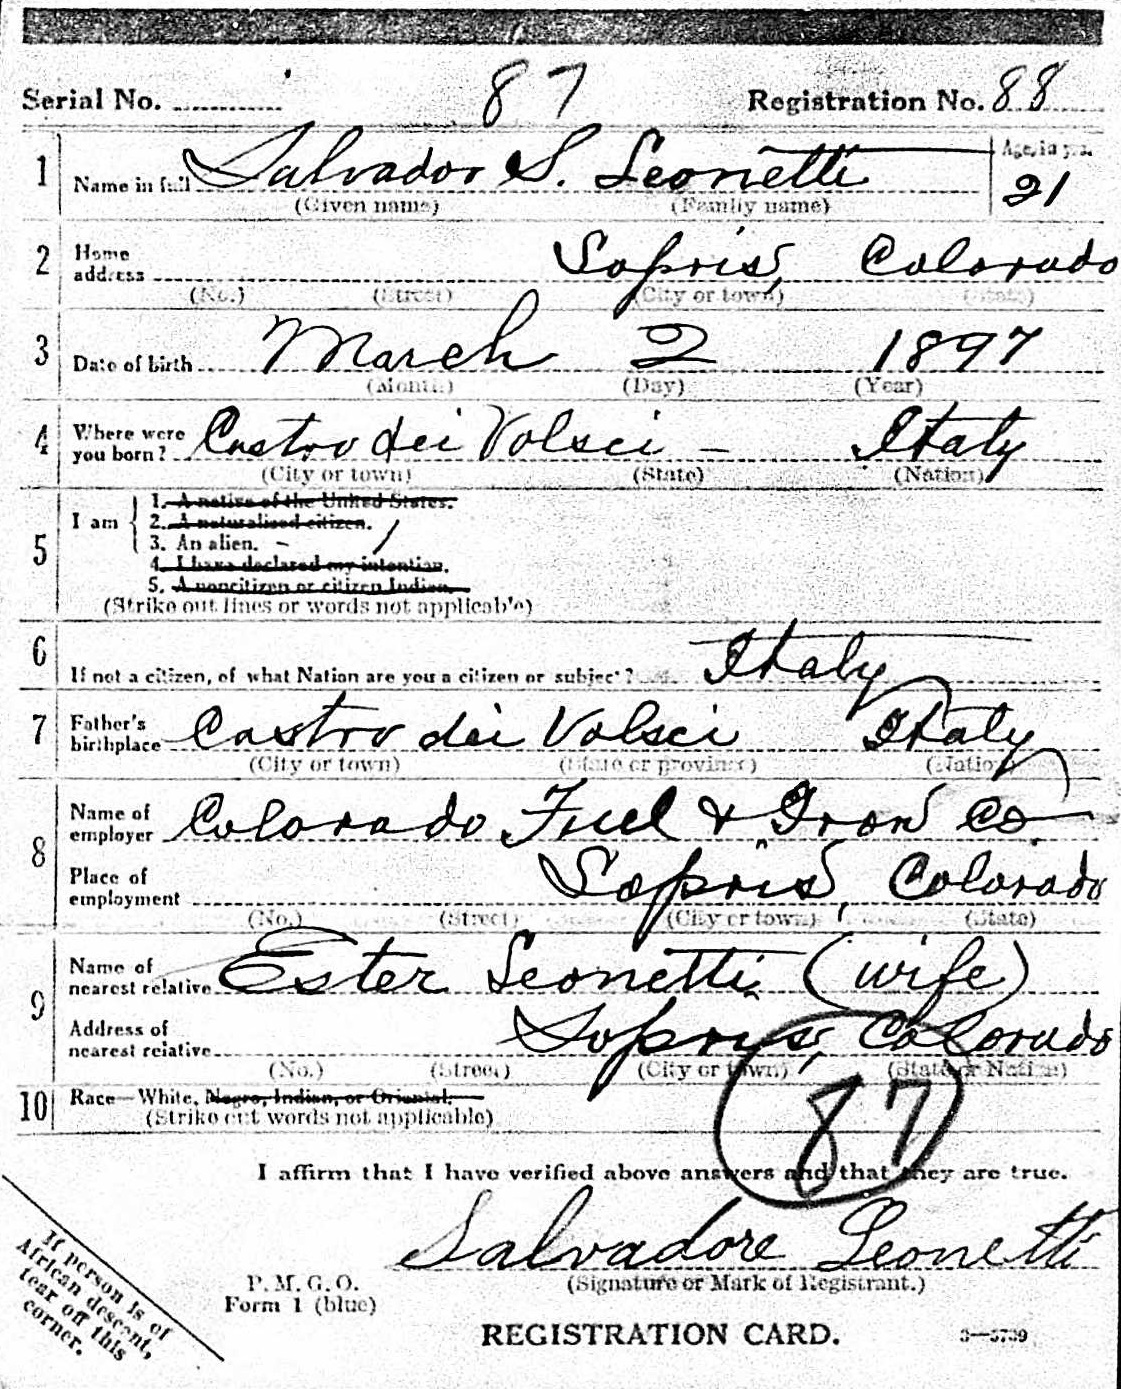 Serial No. 87 Registration No. 88
1 Name in full Salvador S. Leonetti Age, in yrs. 21
(Given name) (Family name)
2 Home address Sopris, Colorado
(No.) (Street) (City or town) (State)
3 Date of birth March 2 1897
(Month) (Day) (Year)
4 Where were you born? Castro dei Volsci - Italy
(City or town) (State) (Nation)
1. A native of the United States.
5 I am 2. A naturalized citizen.
3. An alien. - /
4. I have declared my intention.
5. A noncitizen or citizen Indian.
(Strike out lines or words not applicable)
6 If not a citizen, of what Nation are you a citizen or subject? Italy
7 Father's birthplace Castro dei Volsci Italy
(City or town) (State or province) (Nation)
8 Name of employer Colorado Fuel & Iron Co
Place of employment Sopris, Colorado
(No.) (Street) (City or town) (State)
9 Name of nearest relative Ester Leonetti (wife)
Address of nearest relative Sopris, Colorado
(No.) (Street) (City or town) (State or Nation)
10 Race—White, Negro, Indian, or Oriental.
(Strike out words not applicable)
87
I affirm that I have verified above answers and that they are true.
Salvadore Leonetti
(Signature or Mark of Registrant.)
P. M. G. O.
Form 1 (blue)
REGISTRATION CARD. 3—5739
If person is of
African descent,
tear off this
corner.